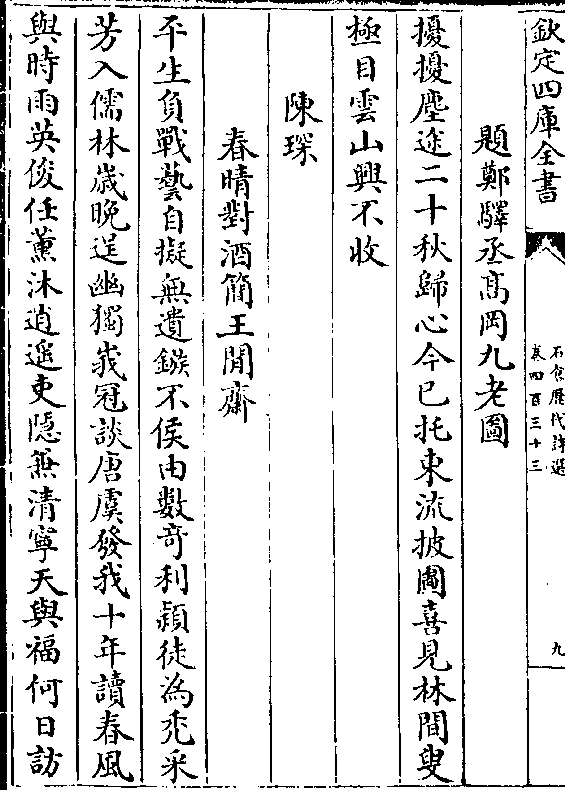 欽定四庫全書
石倉歷代詩選
卷四百三十三
九
題鄭驛丞髙岡九老圖
擾擾塵途二十秋歸心今已托東流披圖喜見林間叟
極目雲山興不收
陳琛
春晴對酒簡王閒齋
平生負戰藝自擬無遺鏃不侯由數奇利穎徒為禿采
芳入儒林歲晚逞幽獨峩冠談唐虞發我十年讀春風
與時雨英俊任薰沐逍遥吏隠兼清寧天與福何日訪